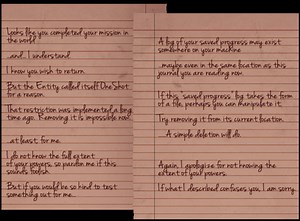 Looks like you completed your mission in
the world
...and... I understand.
I know you wish to return.
But the Entity called itself OneShot
for a reason.
That restriction was implemented a long
time ago. Removing it is impossible now.
...at least for me.
I do not know the full extent
of your powers, so pardon me if this
sounds foolish.
But if you would be so kind to test
something out for me...
A log of your saved progress may exist
somewhere on your machine
...maybe even in the same location as this
journal you are reading now.
If this "saved progress" log takes the form
of a file, perhaps you can manipulate it.
Try removing it from its current location.
...A simple deletion will do.
Again, I apologize for not knowing the
extent of your powers.
If what I described confuses you, I am sorry.